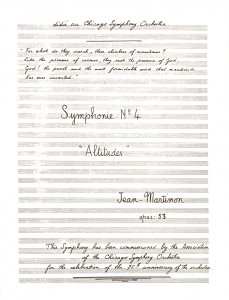 dédié au Chicago Symphony Orchestra
"For what do they search, these climbers of mountains?
Like the pioneers of cosmos, they seek the presence of God.
God! the purest and the most formidable word that mankind
has ever invented"
Symphonie Nº 4
"Altitudes"
Jean Martinon
opus: 53
This Symphony has been commissioned by the Association
of the Chicago Symphony Orchestra
for the celebration of the 75th anniversary of the orchestra